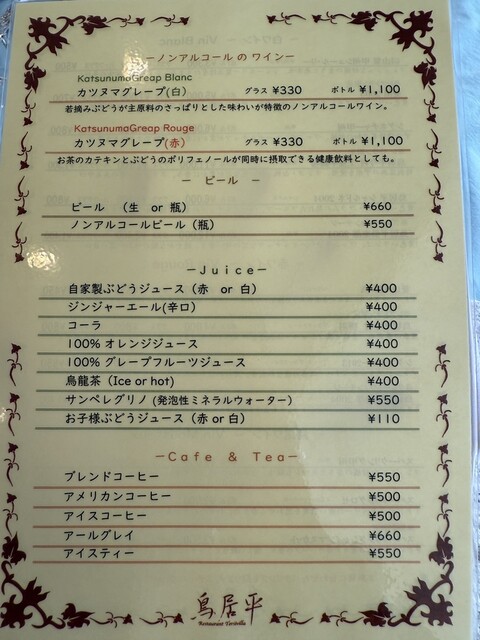 －ノンアルコール の ワイン－
KatsunumaGreap Blanc
カツヌマグレープ(白) グラス ¥330 ボトル ¥1,100
若摘みぶどうが主原料のさっぱりとした味わいが特徴のノンアルコールワイン。
KatsunumaGreap Rouge
カツヌマグレープ(赤) グラス ¥330 ボトル ¥1,100
お茶のカテキンとぶどうのポリフェノールが同時に摂取できる健康飲料としても。
－ ビール －
ビール （生 or 瓶） ¥660
ノンアルコールビール（瓶） ¥550
－Juice－
自家製ぶどうジュース（赤 or 白） ¥400
ジンジャーエール(辛口) ¥400
コーラ ¥400
100% オレンジジュース ¥400
100% グレープフルーツジュース ¥400
烏龍茶（Ice or hot) ¥400
サンペレグリノ (発泡性ミネラルウォーター） ¥550
お子様ぶどうジュース（赤 or 白） ¥110
－Cafe & Tea－
ブレンドコーヒー ¥550
アメリカンコーヒー ¥500
アイスコーヒー ¥500
アールグレイ ¥660
アイスティー ¥550
鳥居平
Restaurant Toriivilla